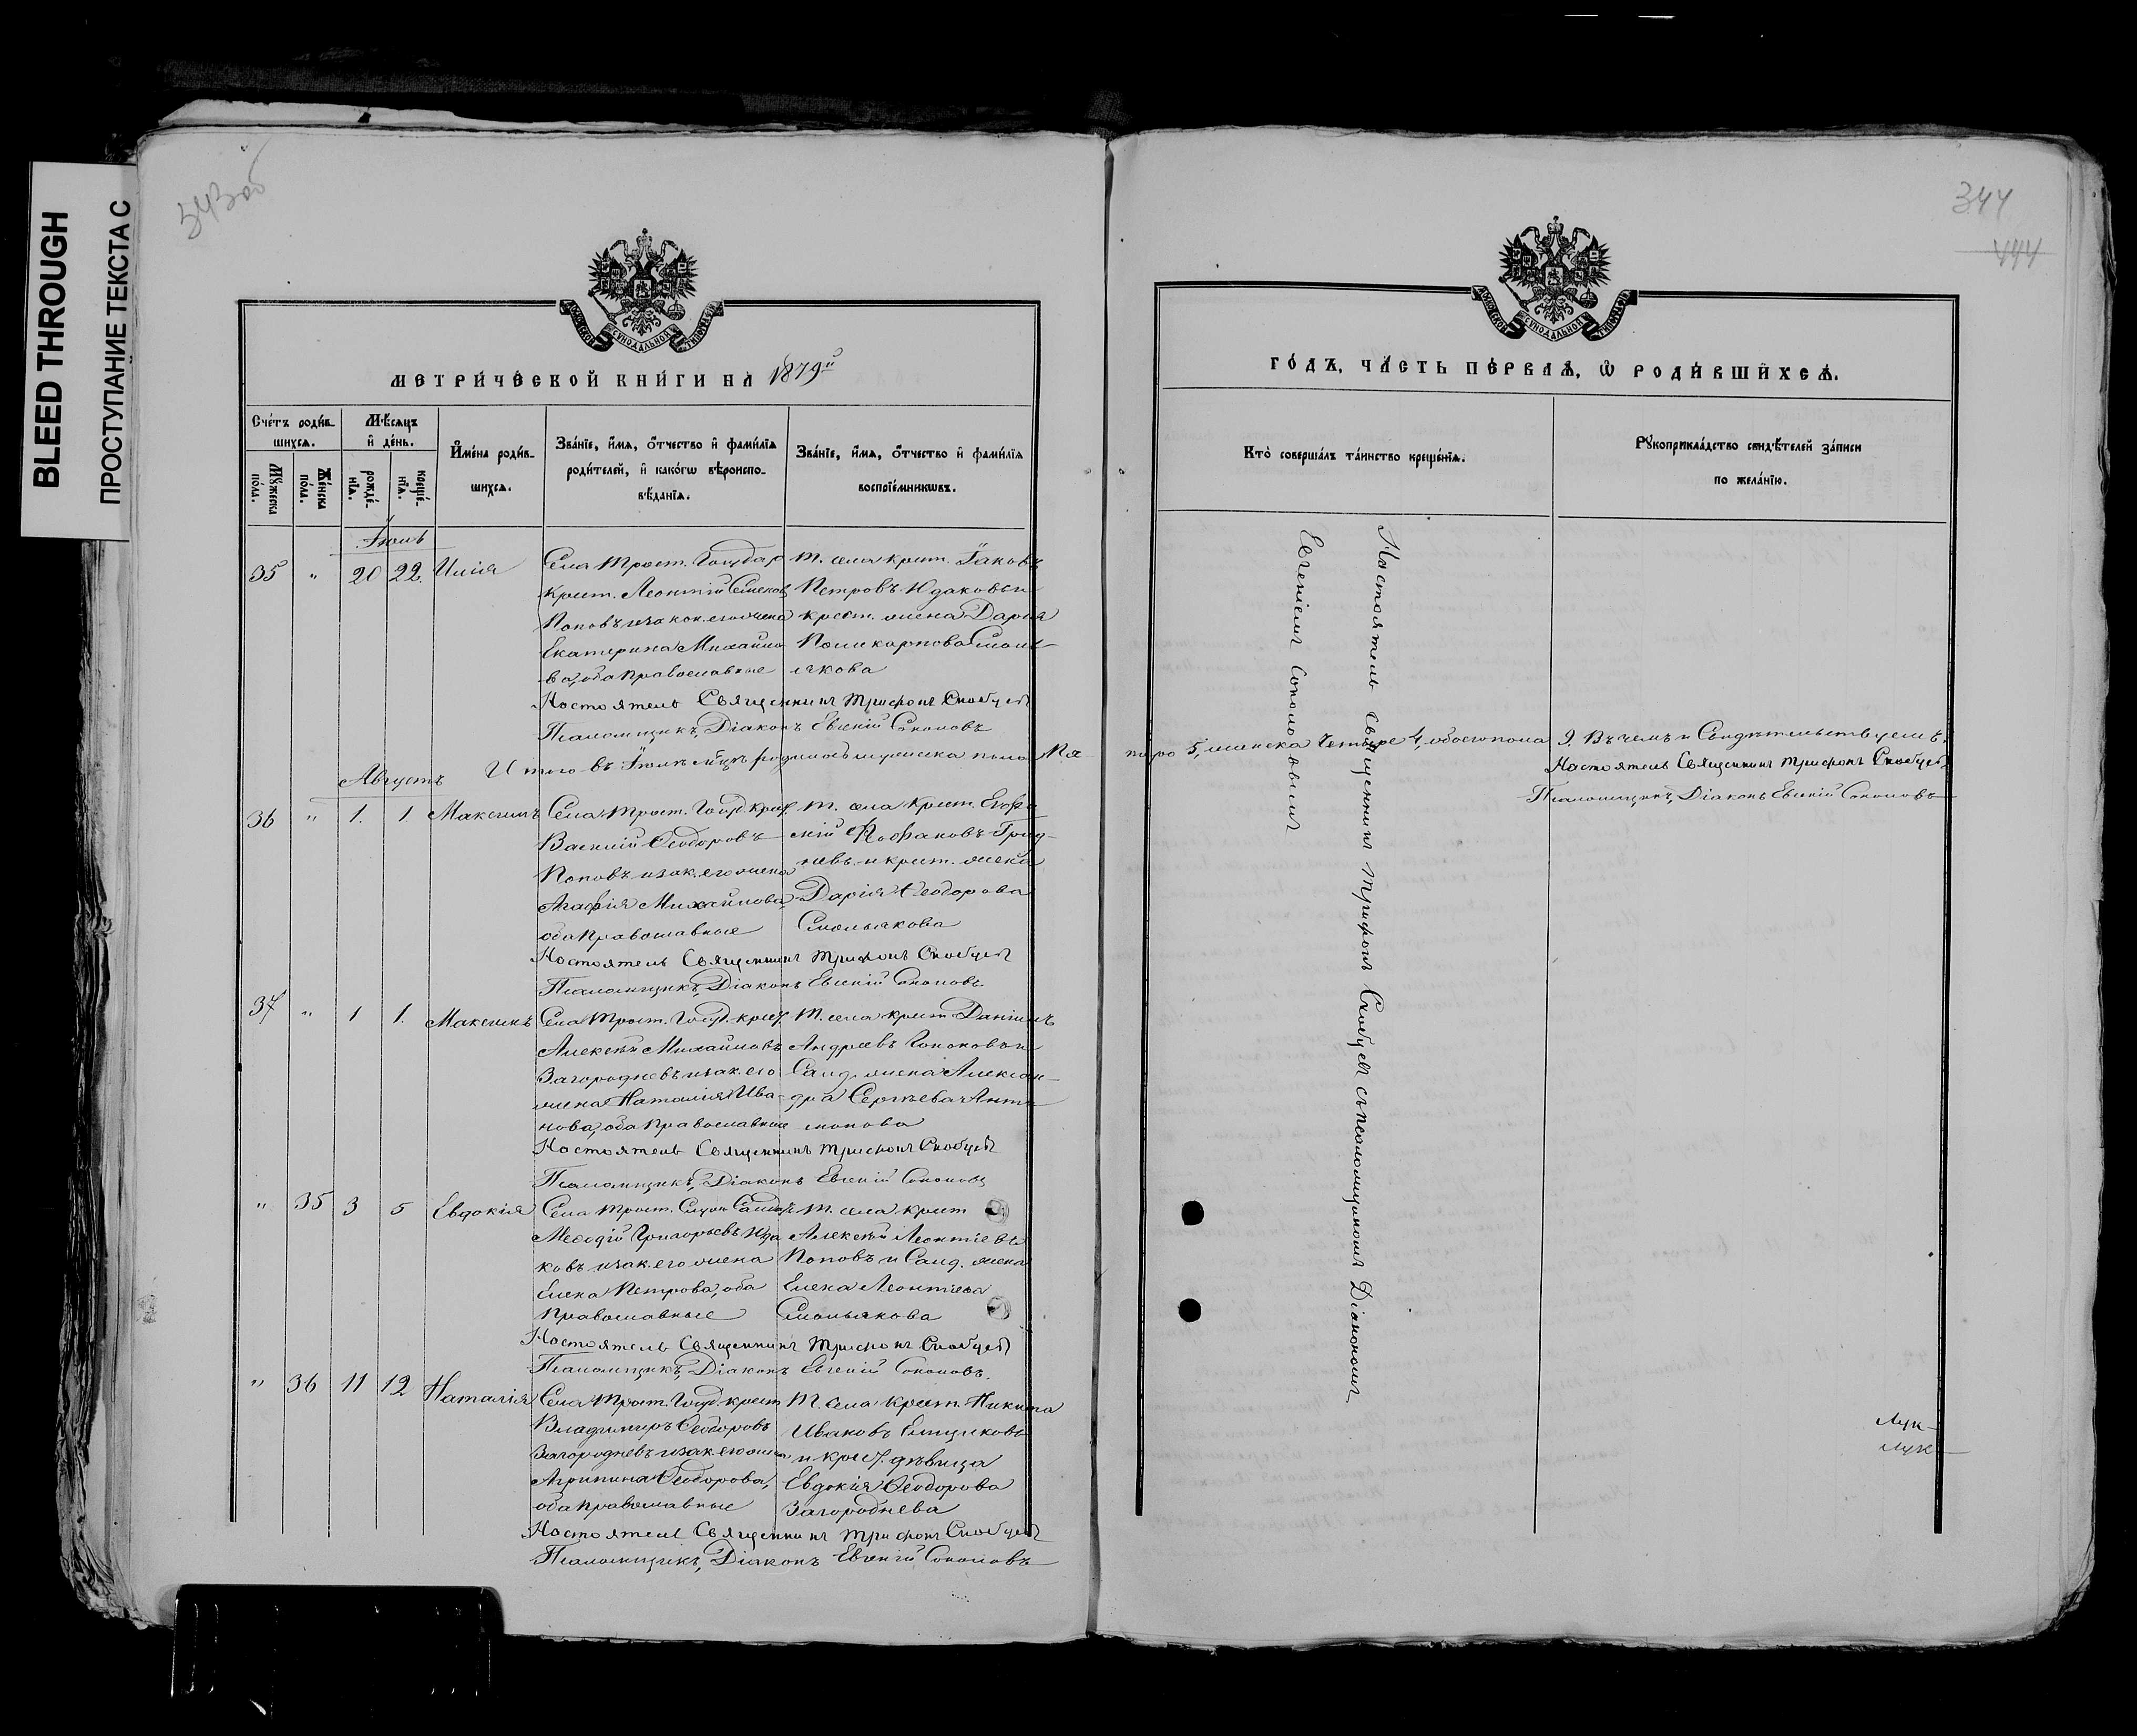 BLEED THROUGH
ПРОСТУПАНИЕ ТЕКСТА С
343 об
МЕТРИЧЕСКОЙ КНИГИ НА 1879й
Счетъ родив-
шихся.
Мѣсяцъ
и день.
Имена родив-
шихся.
Званіе, имя, отчество и фамилія
родителей, и какогѡ вѣроиспо-
вѣданія.
Званіе, имя, отчество и фамилія
воспріемникѡвъ.
Мужеска
пола.
Женска
пола.
рожде-
нія.
креще-
нія.
Іюль
35 " 20 22 Илія
Села Трост. Государ
крест. Леонтій Семенов
Поповъ и закон. его жена
Екатерина Михайло-
ва, оба православные
Т. села крест. Іаковъ
Петровъ Юдаковъ и
крест. жена Дарія
Поликарпова Смоль-
някова
Настоятель Священникъ Трифонъ Скобцев
Псаломщикъ, Діаконъ Евгеній Соколовъ
Итого въ Іюлѣ мѣцѣ родилось мужеска пола Пя
Августъ
36 " 1. 1. Максимъ
Села Трост. Госуд. крест.
Василій Ѳеодоровъ
Поповъ и зак. его жена
Агафія Михайлова,
оба православные
Т. села крест.
и крест. жена
Дарія Ѳеодорова
Смольнякова
Настоятель Священникъ Трифонъ Скобцев
Псаломщикъ, Діаконъ Евгеній Соколовъ
37 " 1 1. Максимъ
Села Трост. Госуд. крест.
Алексѣй Михайловъ
Загородневъ и зак. его
жена Наталія Ива-
нова, оба православные
Т. села крест. Даніилъ
Андреевъ
Солд. жена Алексан-
дра Сергѣева Анти-
Настоятель Священникъ Трифонъ Скобцев
Псаломщикъ, Діаконъ Евгеній Соколовъ
" 35 3 5 Евдокія
Села Трост.
Меѳодій Григорьевъ Юда
ковъ и зак. его жена
Елена Петрова, оба
православные
Т. села крест
Алексѣй Леонтіевъ
Поповъ и Солд. жена
Елена Леонтіева
Смольнякова
Настоятель Священникъ Трифонъ Скобцев
Псаломщикъ, Діаконъ Евгеній Соколовъ.
" 36 11 12 Наталія
Села Трост. Госуд. крест
Владимиръ Ѳеодоровъ
Загородневъ и зак. его жена
Агрипина Ѳеодорова,
оба православные
Т. села крест. Никита
Ивановъ
и крест. дѣвица
Евдокія Ѳеодорова
Загороднева
Настоятель Священникъ Трифонъ Скобцев
Псаломщикъ, Діаконъ Евгеній Соколовъ
344
444
ГОДЪ, ЧАСТЬ ПЕРВАЯ, Ѡ РОДИВШИХСЯ.
Кто совершалъ таинство крещенія.
Рукоприкладство свидѣтелей записи
по желанію.
Настоятель Священникъ Трифонъ Скобцев съ псаломщикомъ Діакономъ
Евгеніемъ Соколовымъ
теро 5, женска Четыре 4, обоего пола 9. Въ чемъ и Свидѣтельствуемъ.
Настоятель Священникъ Трифонъ Скобцев
Псаломщикъ, Діаконъ Евгеній Соколовъ
Лук
Лук